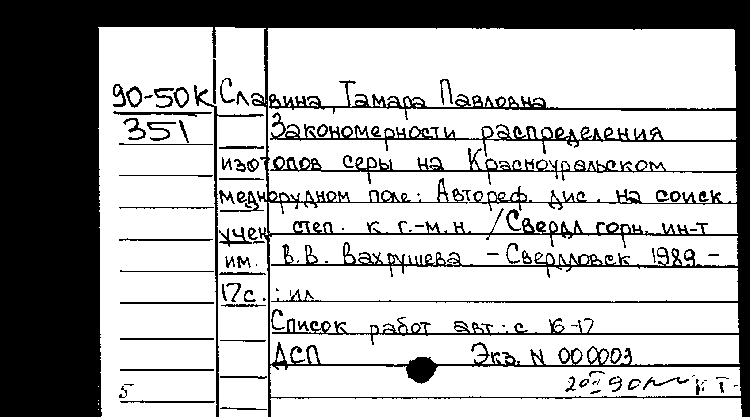 90-50К Славина, Тамара Павловна
351 Закономерности распределения
изотопов серы на Красноуральском
меднорудном поле: Автореф. дис. на соиск.
учен. степ. к. г.-м.н. / Свердл. горн. ин-т
им. В.В. Вахрушева. - Свердловск, 1989. -
17с. : ил.
Список работ авт.: с. 16-17
ДСП Экз. N 000003
5